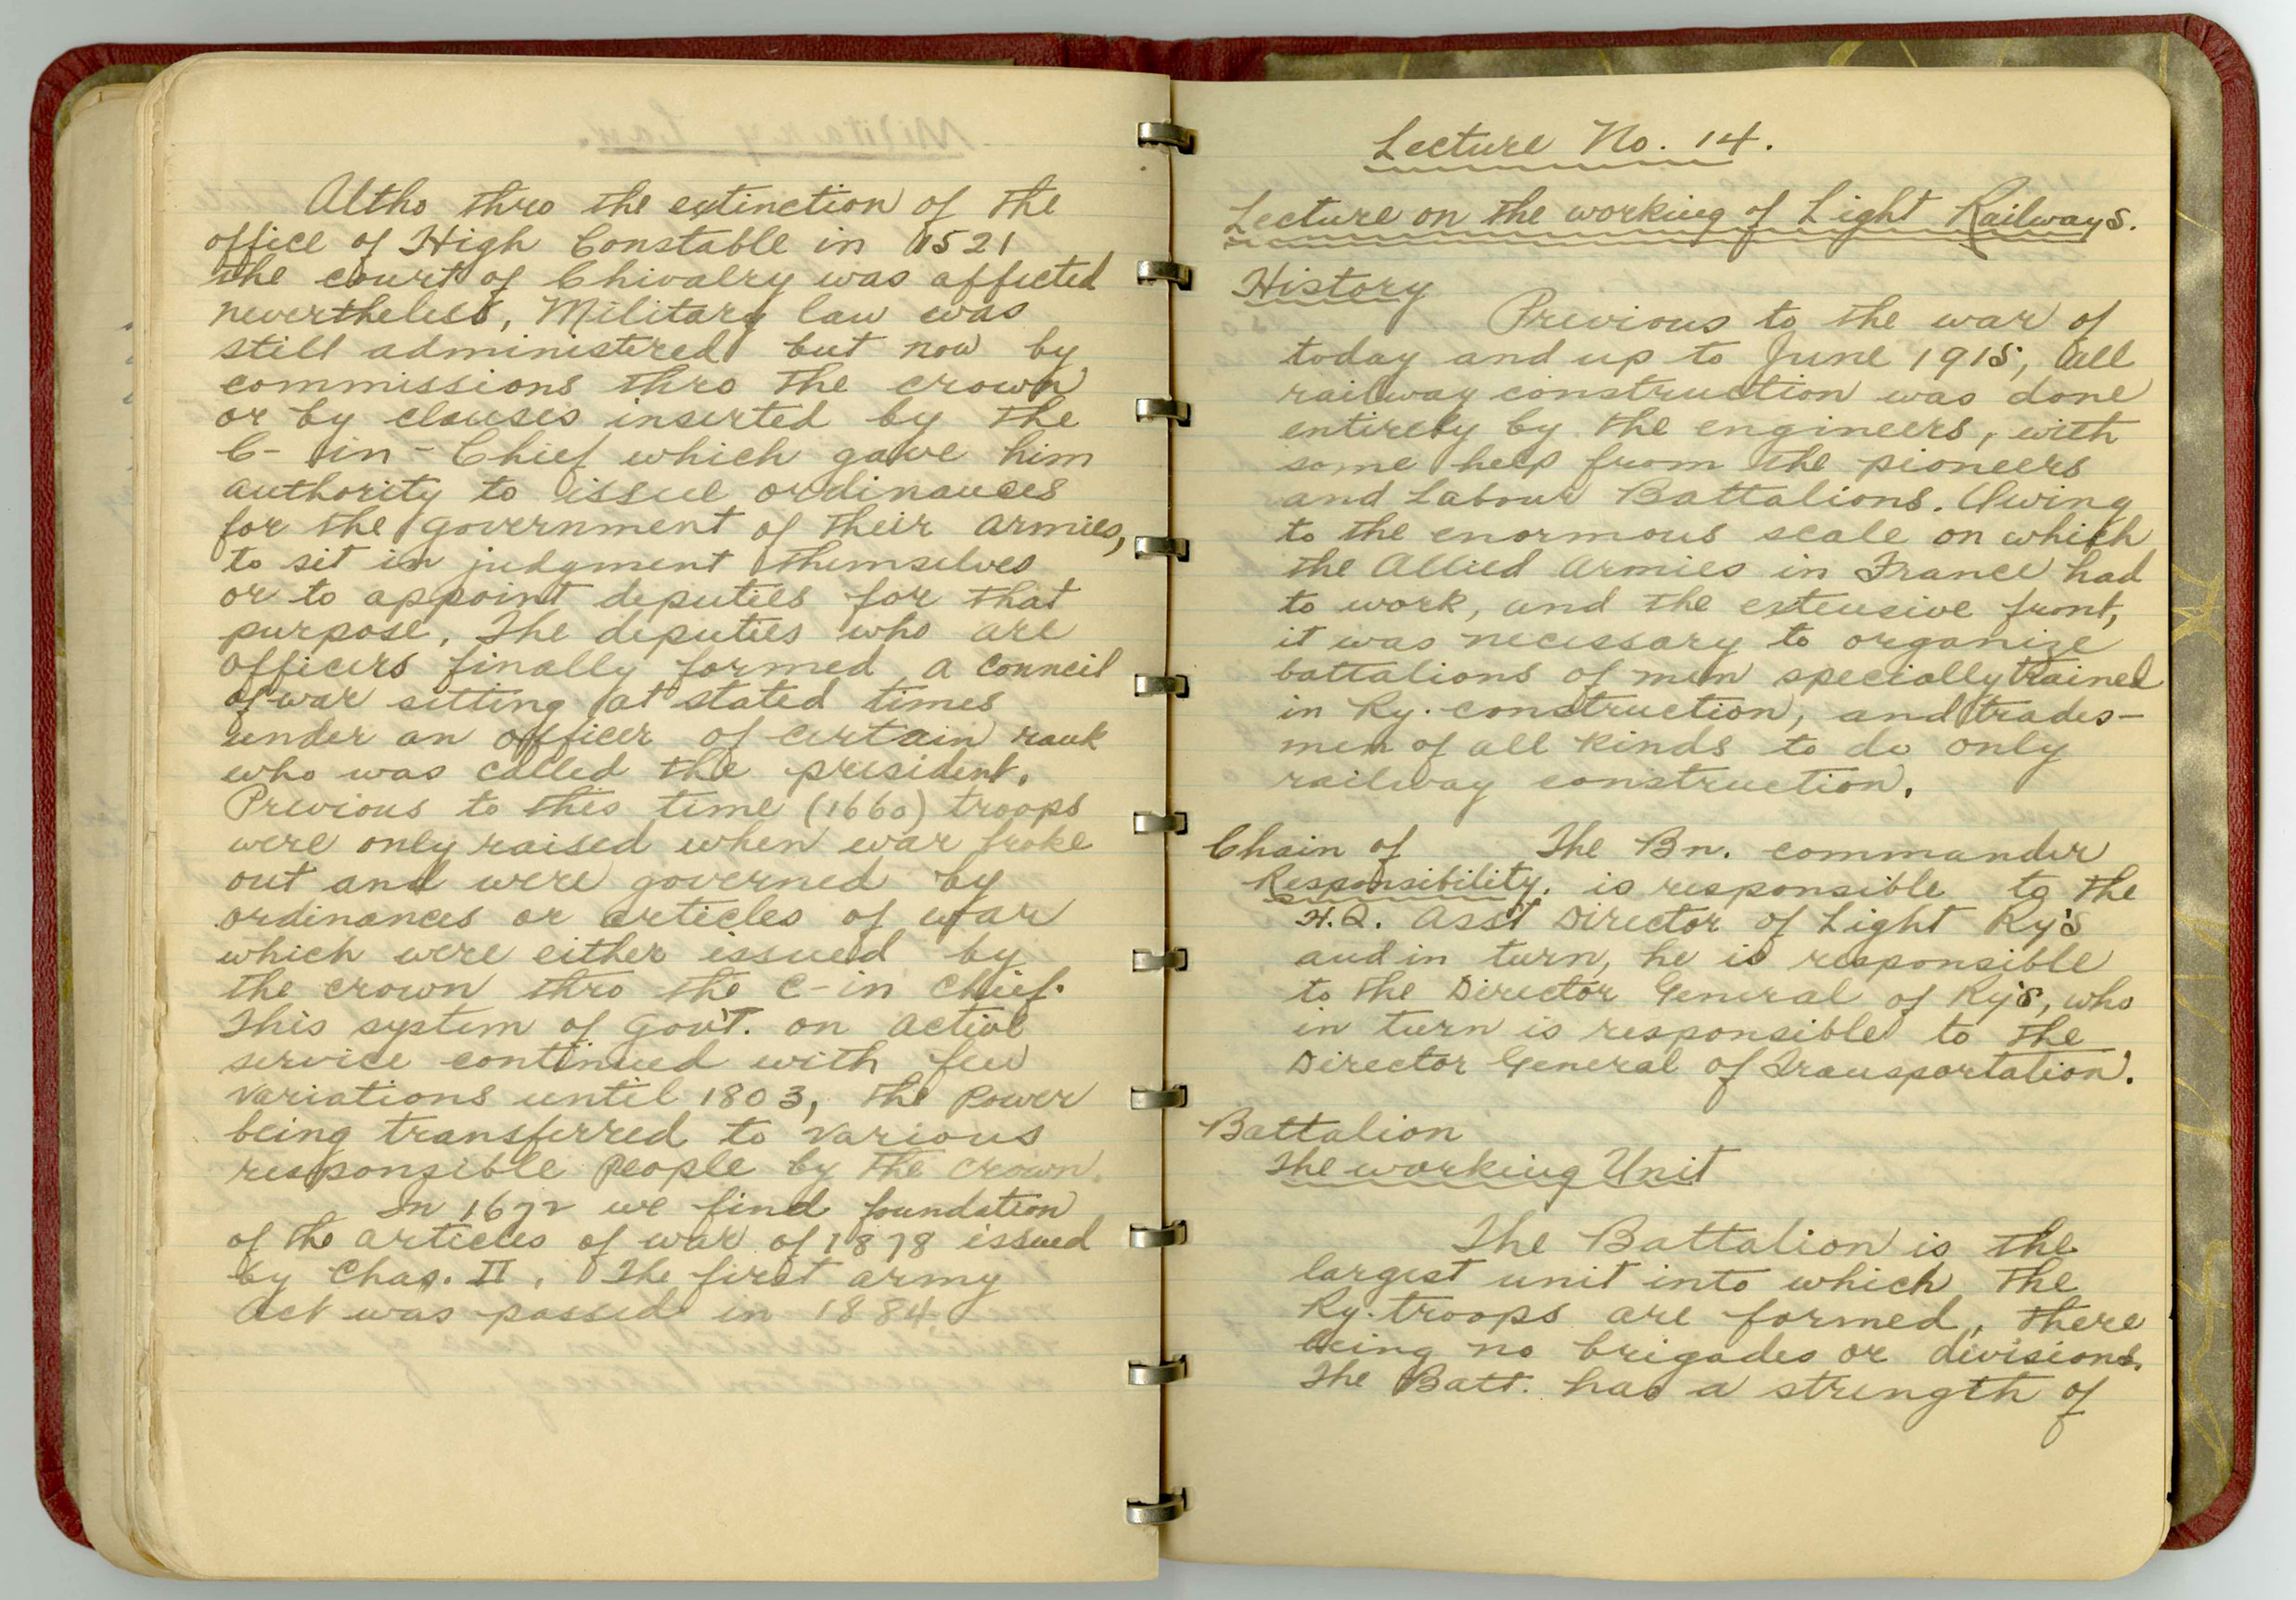 Altho thro the extinction of the
office of High Constable in 1521
the court of Chivalry was affected
nevertheless, Military law was
still administered but now by
commissions thro the crown
or by clauses inserted by the
C- in - Chief which gave him
authority to issue ordinances
for the government of their armies,
to sit in judgment themselves
or to appoint deputies for that
purpose. The deputies who are
officers finally formed a council
of war sitting at stated times
under an officer of certain rank
who was called the president.
Previous to this time (1660) troops
were only raised when war broke
out and were governed by
ordinances or articles of war
which were either issued by
the crown thro the C-in Chief.
This system of Gov't. on active
service continued with few
variations until 1803, the Power
being transferred to various
responsible People by the crown.
In 1672 we find foundation
of the articles of war of 1878 issued
by Chas. II. The first army
Act was passed in 1884
Lecture No. 14.
Lecture on the working of Light Railways.
History
Previous to the war of
today and up to June 1915, all
railway construction was done
entirely by the engineers, with
some help from the pioneers
and Labour Battalions. Owing
to the enormous scale on which
the Allied Armies in France had
to work, and the extensive front,
it was necessary to organize
battalions of men specially trained
in Ry. construction, and trades-
men of all kinds to do only
railway construction.
Chain of The Bn. commander
Responsibility. is responsible to the
H.Q. Ass't Director of Light Ry's
and in turn, he is responsible
to the Director General of Ry's, who
in turn is responsible to the
Director General of Transportation.
Battalion
The working Unit
The Battalion is the
largest unit into which the
Ry. troops are formed, there
being no brigades or divisions.
The Batt. has a strength of